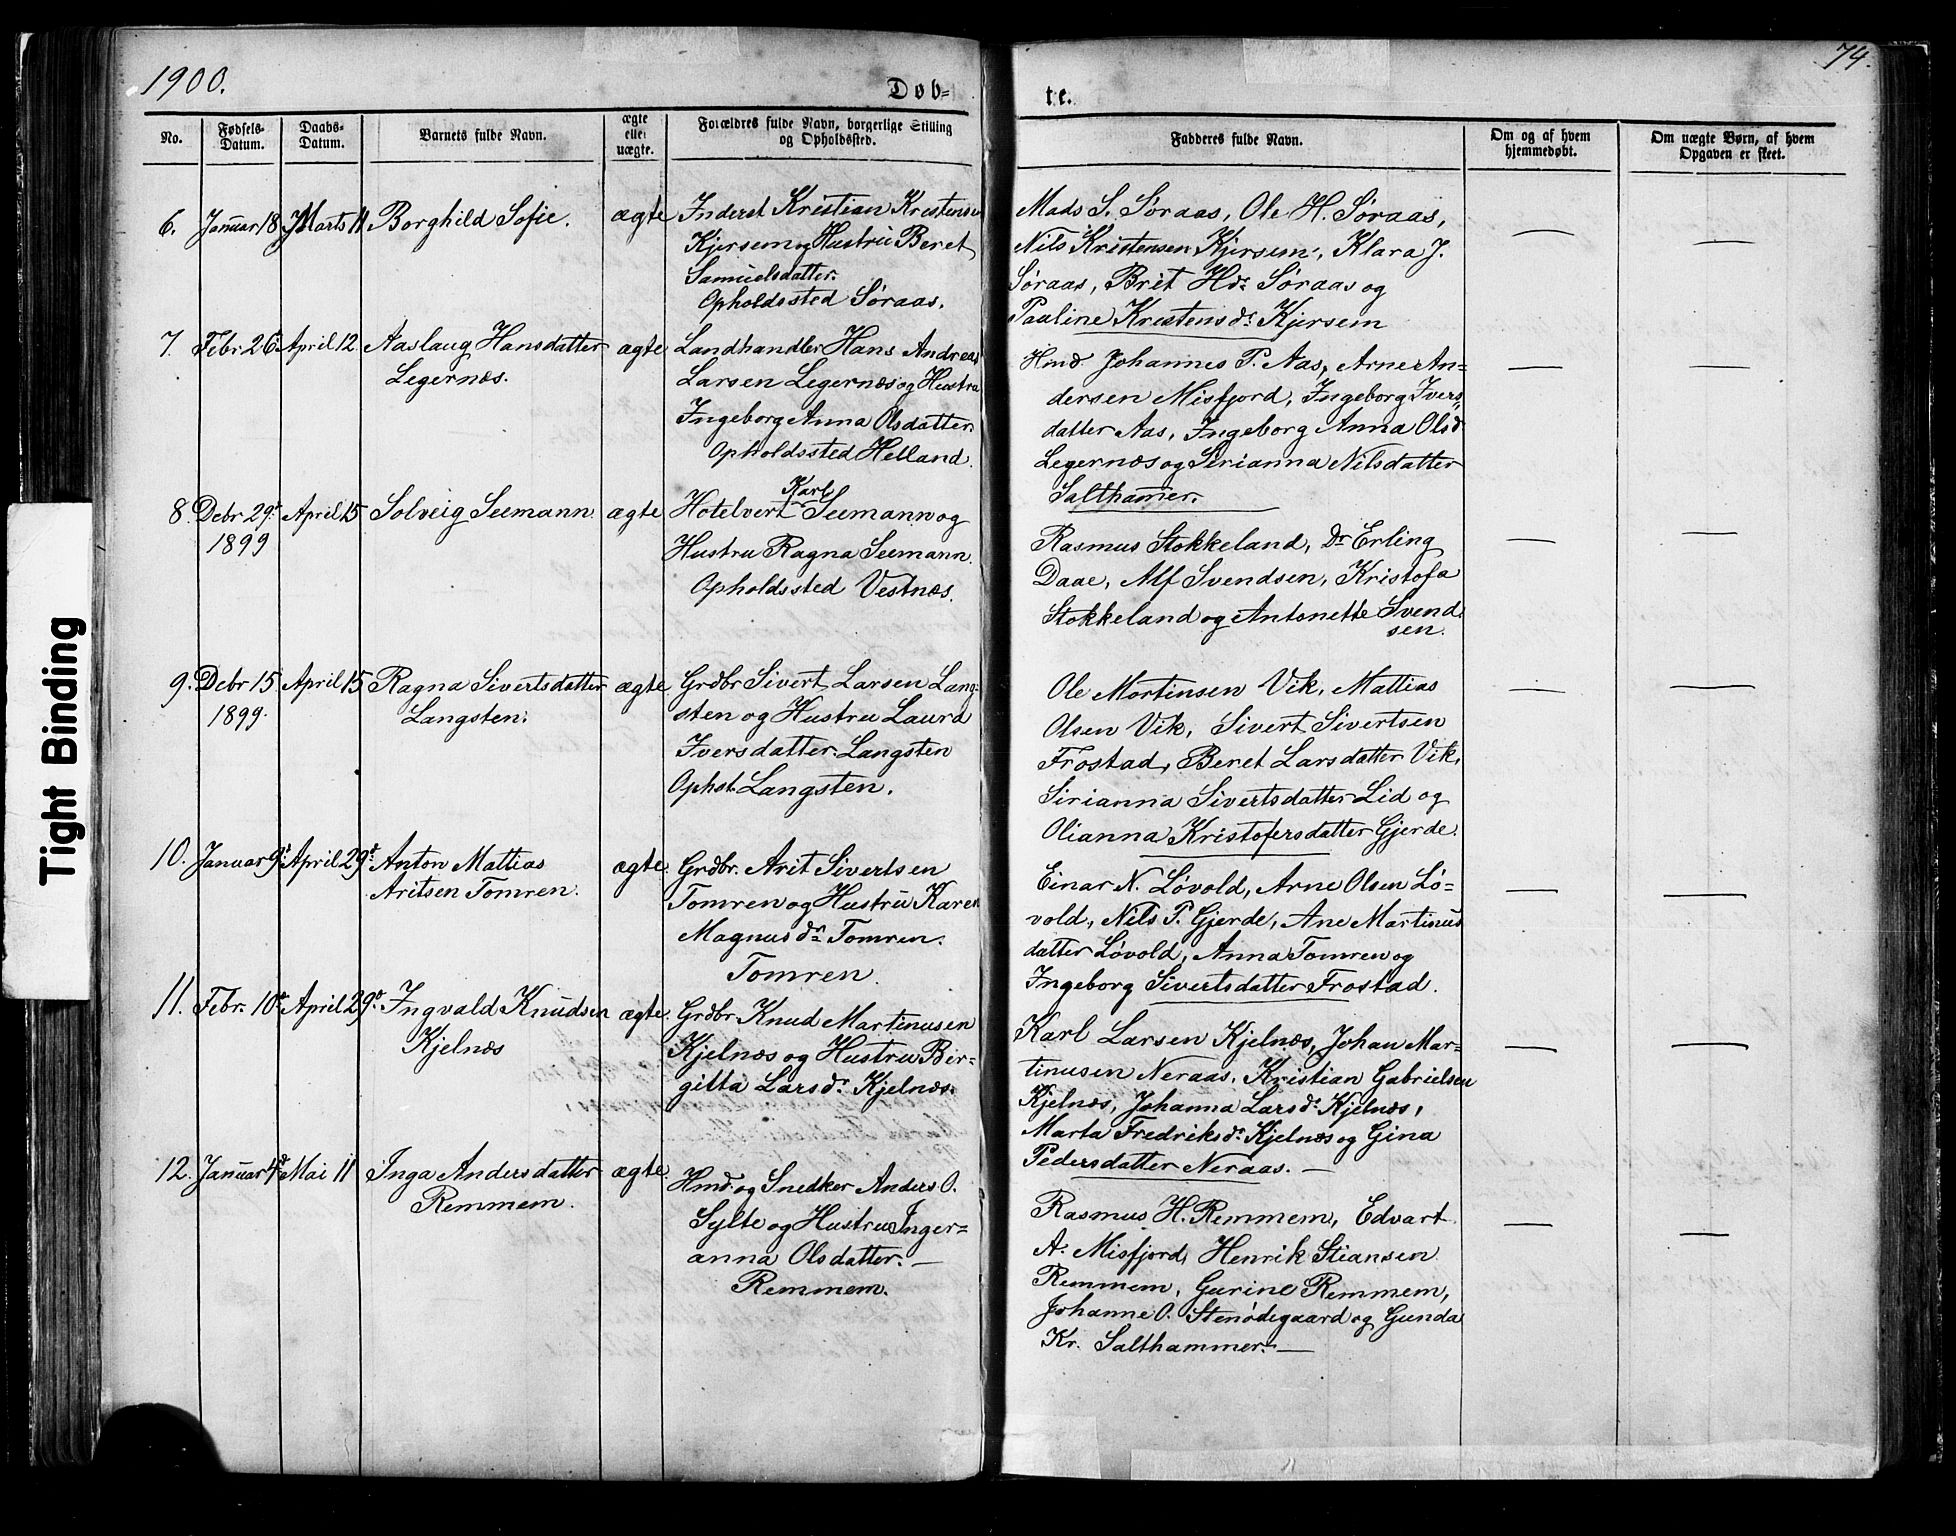 1900.
Døb=
te.
74.
No.
Fødsels-
Datum.
Daabs-
Datum.
Barnets fulde Navn.
ægte
eller
uægte.
Forældres fulde Navn, borgerlige Stilling
og Opholdssted.
Fadderes fulde Navn.
Om og af hvem
hjemmedøbt.
Om uægte Børn, af hvem
Opgaven er skeet.
6. Januar 18 Marts 11 Borghild Sofie. ægte Inderst Kristian Kristensen
Kjersem og Hustru Beret
Samuelsdatter.
Opholdssted Søraas.
Mads S. Søraas, Ole H. Søraas,
Nils Kristensen Kjersem, Klara J.
Søraas, Brit Hdr Søraas og
Pauline Kristensdr Kjersem
7. Febr 26 April 12 Aaslaug Hansdatter ægte Landhandler Hans Andreas
Legernæs. Larsen Legernæs og Hustru
Ingeborg Anna Olsdatter.
Opholdssted Helland.
Hmd. Johannes P. Aas, Arne An=
dersen Misfjord, Ingeborg Ivers=
datter Aas, Ingeborg Anna Olsd
Legernæs og Sirianna Nilsdatter
Salthamer.
8. Debr 29d April 15 Solveig Seemann ægte Hotelvert Karl Seemann og
1899 Hustru Ragna Seemann.
Opholdssted Vestnæs.
Rasmus Stokkeland, Dr Erling
Daae, Alf Svendsen, Kristofa
Stokkeland og Antonette Svend
sen.
9. Debr 15 April 15 Ragna Sivertsdatter ægte Grdbr Sivert Larsen Lang-
1899. Langsten. sten og Hustru Laura
Iversdatter Langsten
Ophst. Langsten.
Ole Mortinsen Vik, Mattias
Olsen Vik, Sivert Sivertsen
Frostad, Beret Larsdatter Vik,
Sirianna Sivertsdatter Lid og
Olianna Kristofersdatter Gjerde.
10. Januar 9d April 29d Anton Mattias ægte. Grdbr. Arit Sivertsen
Aritsen Tomren. Tomren og Hustru Karen
Magnusdr Tomren.
Tomren.
Einar N. Løvold, Arne Olsen Lø=
vold, Nils P. Gjerde, Ane Martinus
datter Løvold, Anna Tomren og
Ingeborg Sivertsdatter Frostad.
11. Febr. 10d April 29d Ingvald Knudsen ægte. Grdbr Knud Martinusen
Kjelnæs Kjelnæs og Hustru Bir=
gitta Larsdr Kjelnæs.
Karl Larsen Kjelnæs, Johan Mar=
tinusen Neraas, Kristian Gabrielsen
Kjelnæs, Johanna Larsdr Kjelnæs,
Marta Fredriksdr Kjelnæs og Gina
Pedersdatter Neraas.
12. Januar 4d Mai 11 Inga Andersdatter ægte. Hmd. og Snedker Anders O.
Remmem. Sylte og Hustru Inger=
anna Olsdatter.
Remmem.
Rasmus H. Remmem, Edvart
A. Misfjord, Henrik Stiansen
Remmem, Gurine Remmem,
Johanne O. Stenødegaard og Gunda
Kr. Salthammer.
Tight Binding